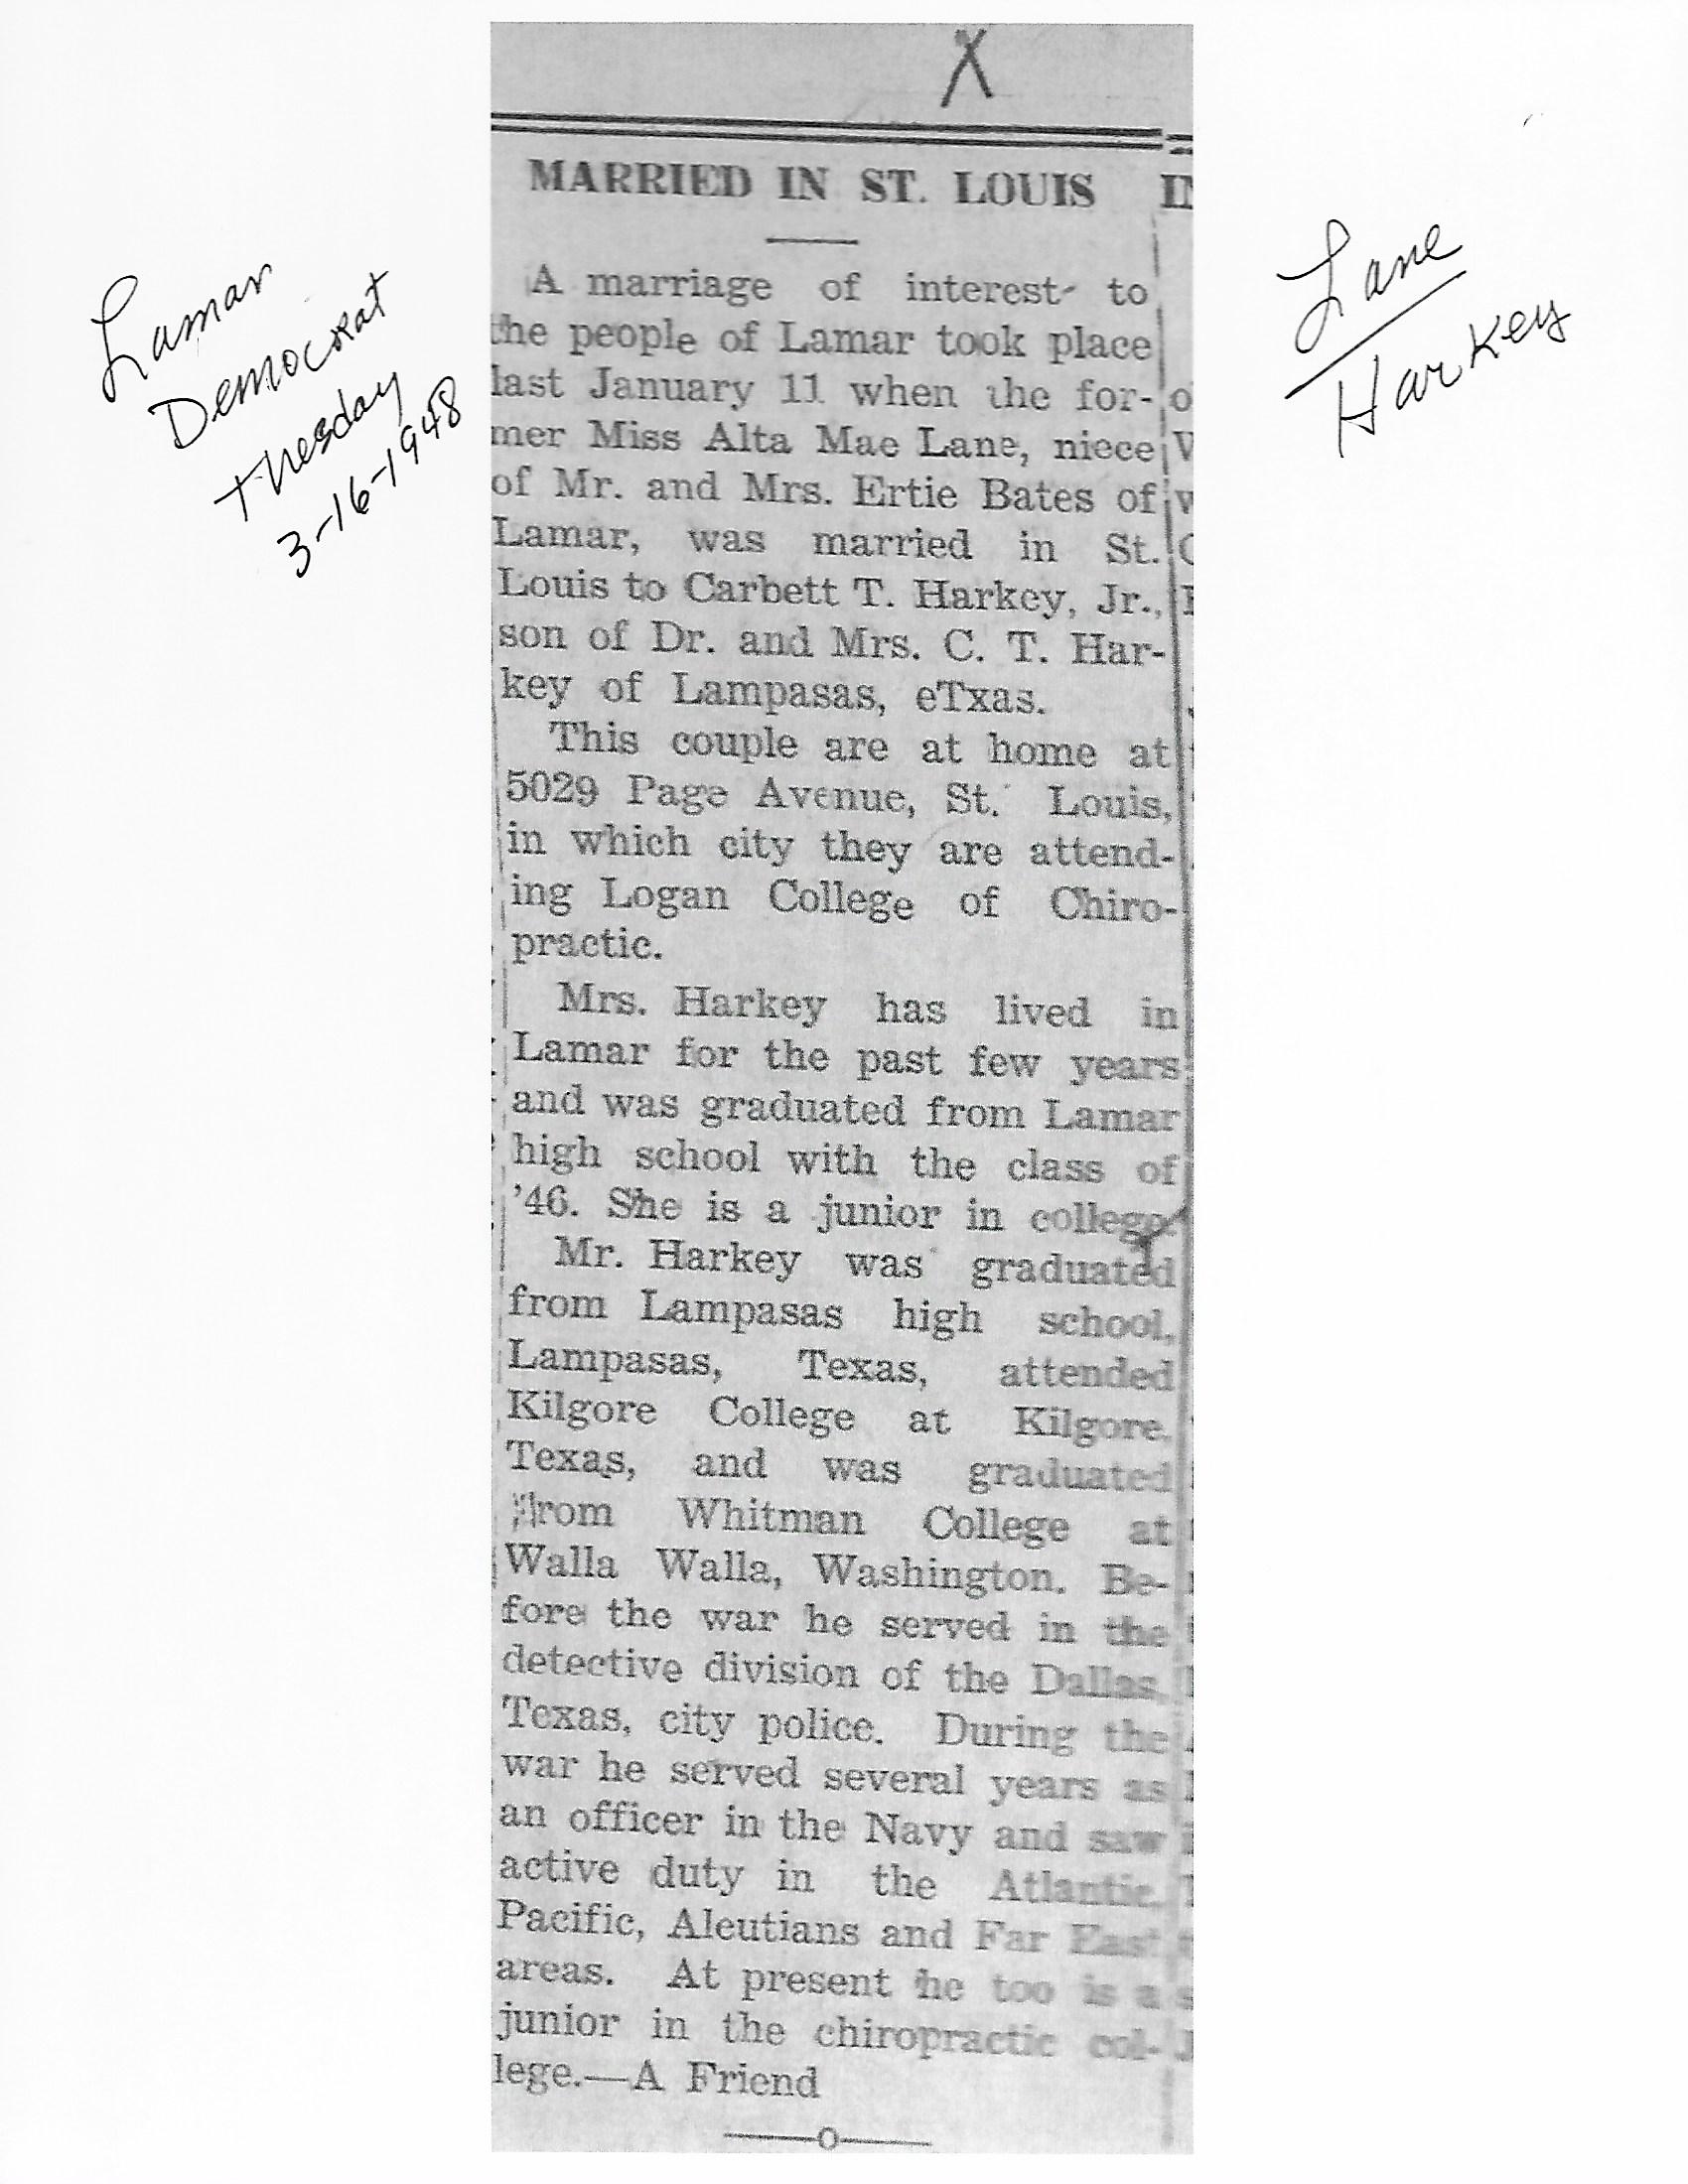 X
MARRIED IN ST. LOUIS
A marriage of interest to
the people of Lamar took place
last January 11 when the for-
mer Miss Alta Mae Lane, niece
of Mr. and Mrs. Ertie Bates of
Lamar, was married in St.
Louis to Carbett T. Harkey, Jr.,
son of Dr. and Mrs. C. T. Har-
key of Lampasas, eTxas.
This couple are at home at
5029 Page Avenue, St. Louis,
in which city they are attend-
ing Logan College of Chiro-
practic.
Mrs. Harkey has lived in
Lamar for the past few years
and was graduated from Lamar
high school with the class of
'46. She is a junior in college.
Mr. Harkey was graduated
from Lampasas high school,
Lampasas, Texas, attended
Kilgore College at Kilgore,
Texas, and was graduated
from Whitman College at
Walla Walla, Washington. Be-
fore the war he served in the
detective division of the Dallas,
Texas, city police. During the
war he served several years as
an officer in the Navy and saw
active duty in the Atlantic,
Pacific, Aleutians and Far East
areas. At present he too is a
junior in the chiropractic col-
lege.—A Friend
Lamar
Democrat
Tuesday
3-16-1948
Lane
Harkey